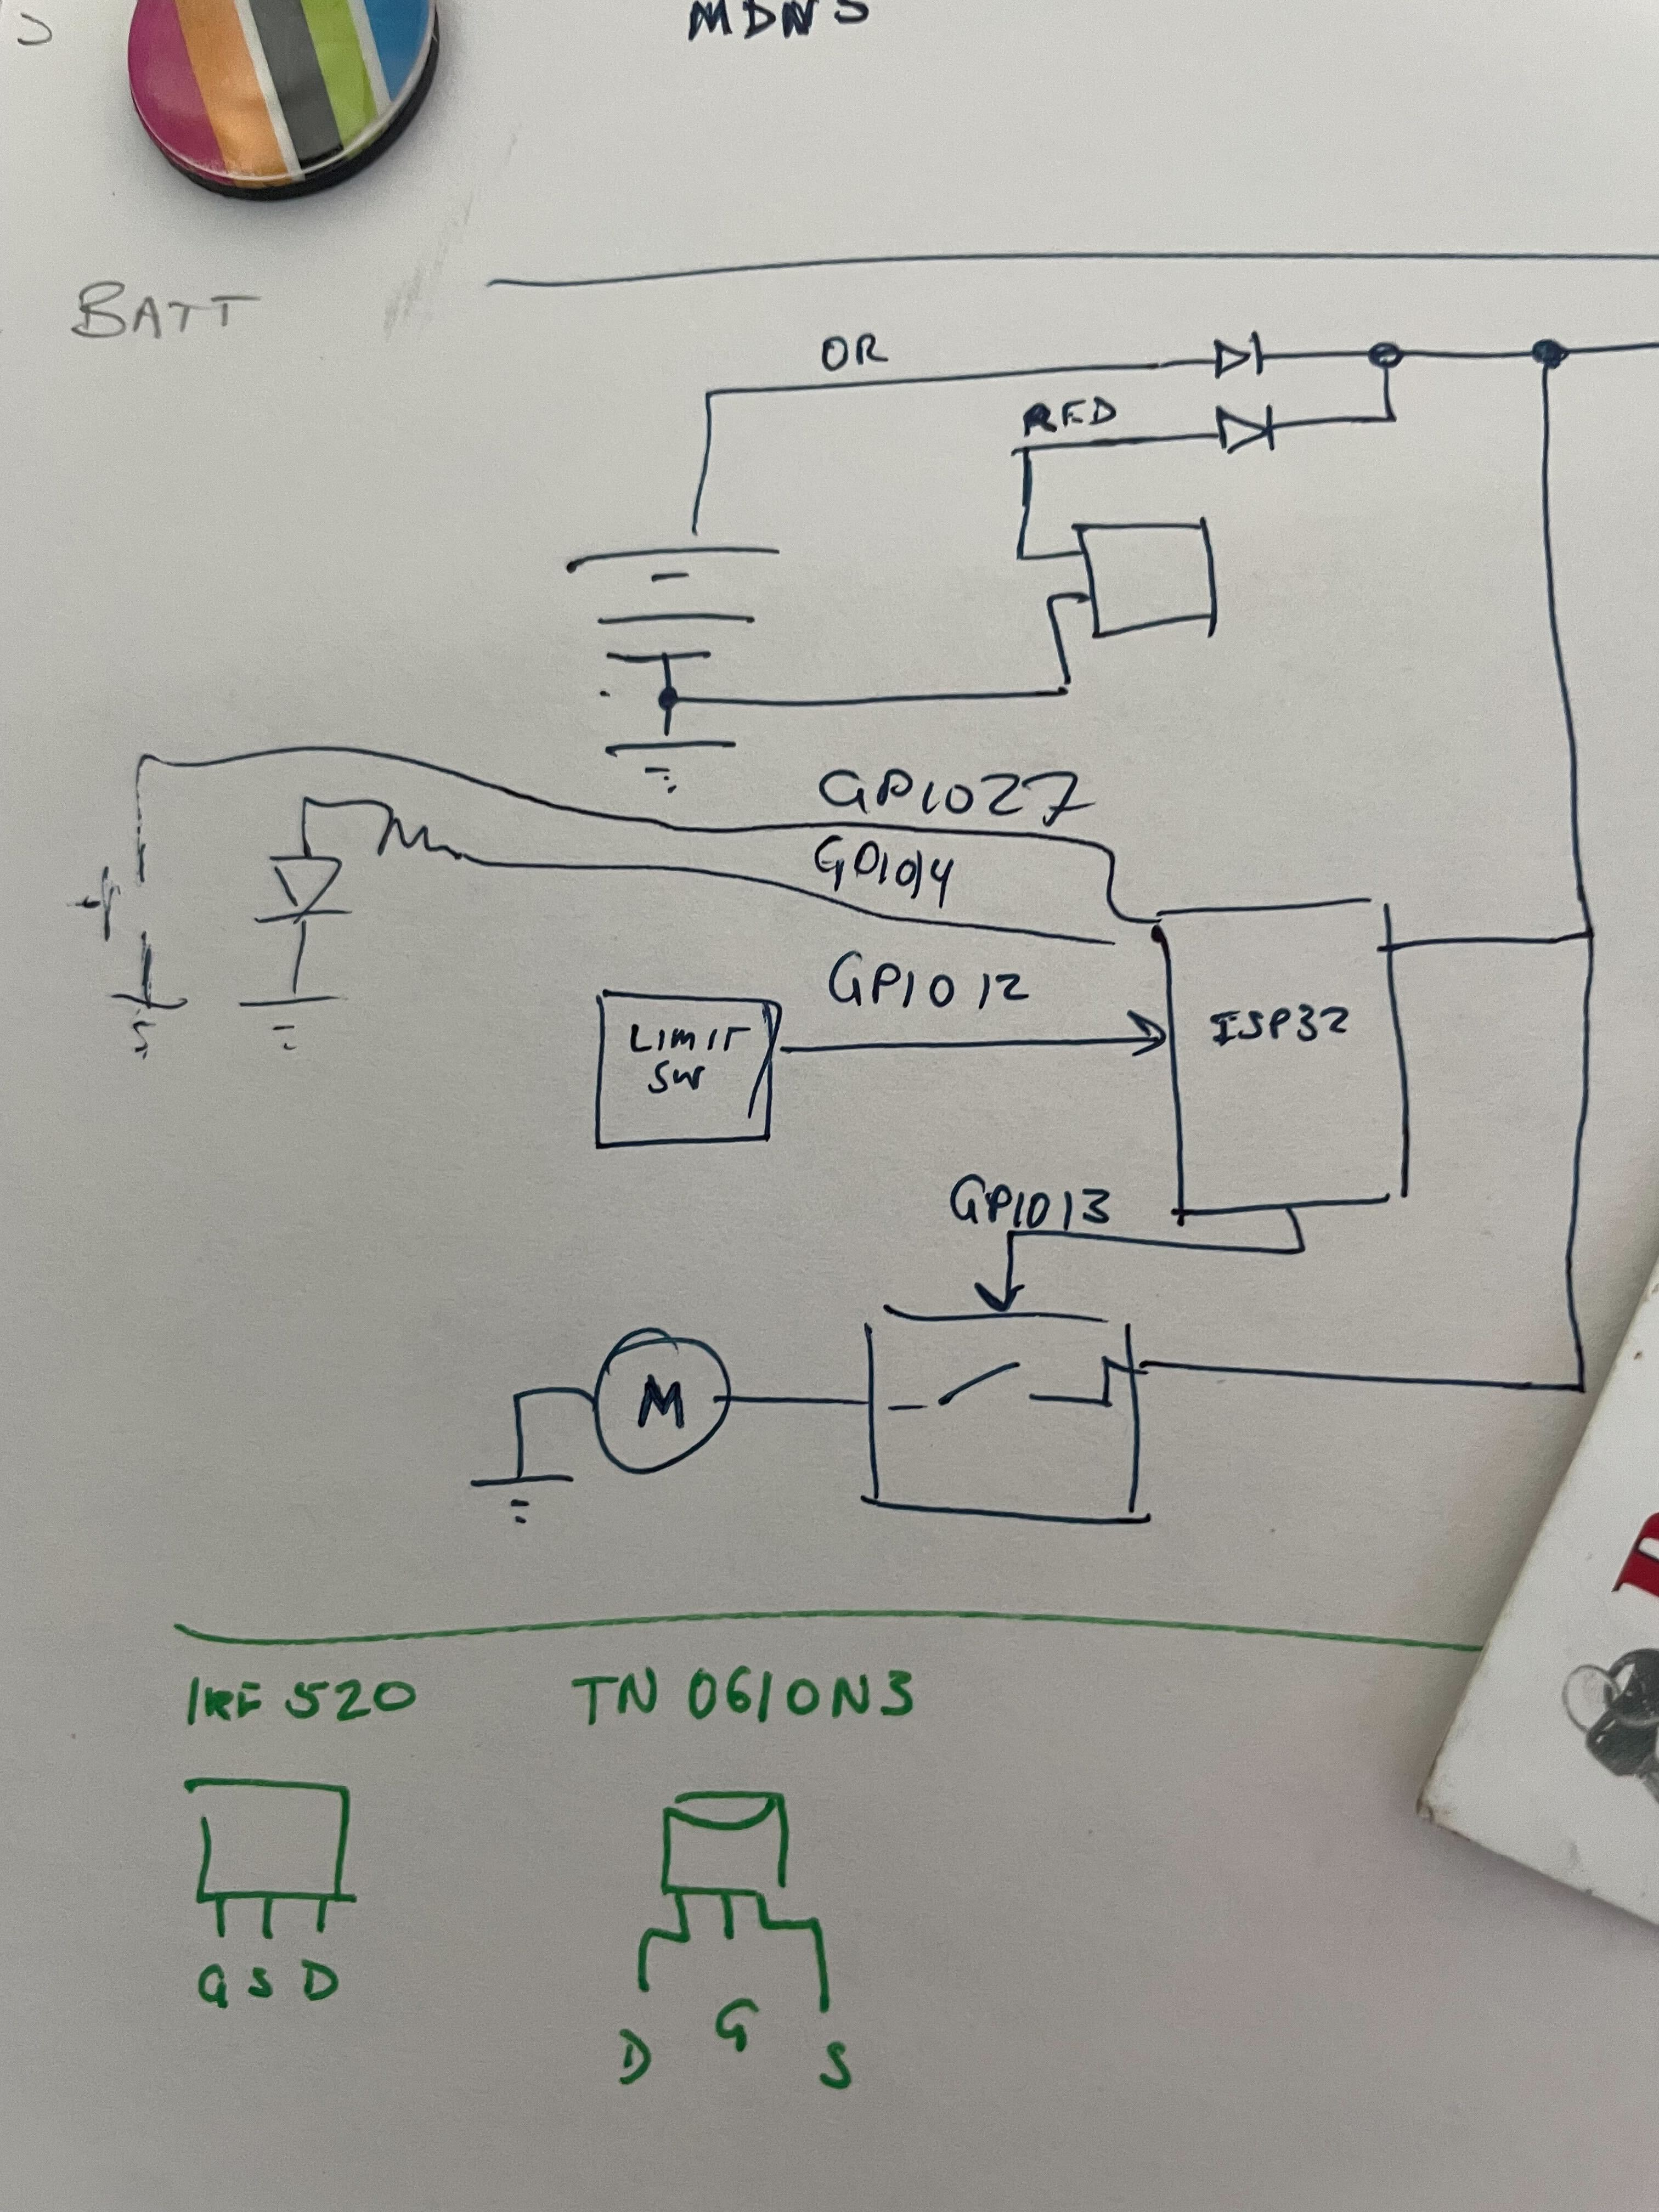 MDNS
BATT
OR
RED
GPIO27
GPIO14
GPIO 12
LIMIT
SW
ISP32
GPIO13
M
IRF520 TN0610N3
G S D
D G S